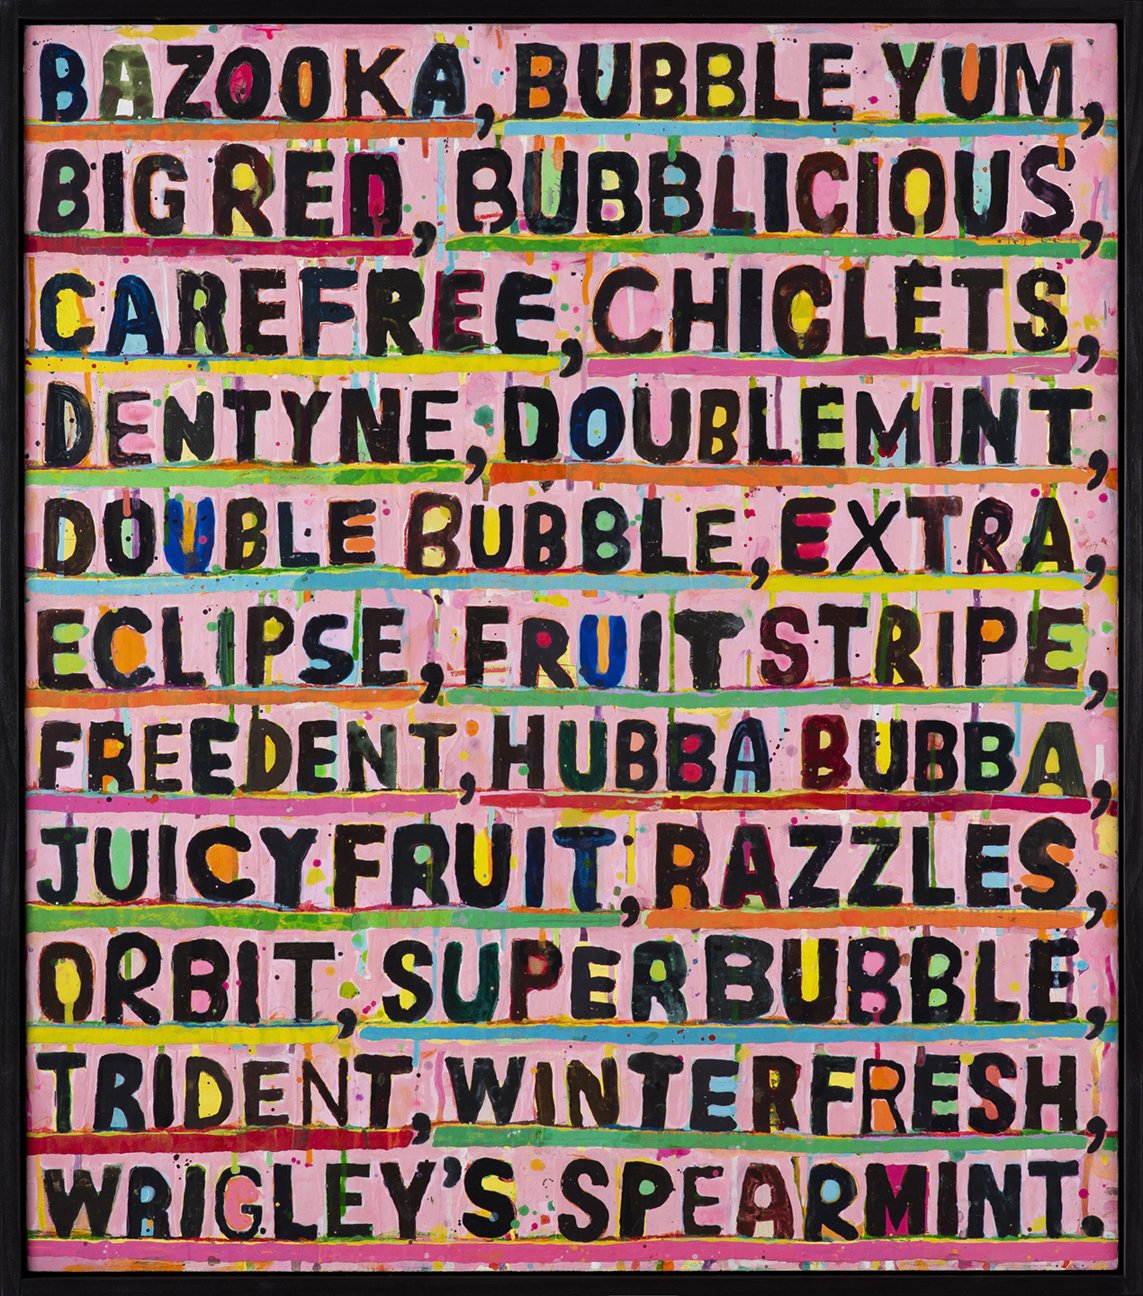 BAZOOKA, BUBBLE YUM,
BIG RED, BUBBLICIOUS,
CAREFREE, CHICLETS,
DENTYNE, DOUBLEMINT,
DOUBLE BUBBLE, EXTRA,
ECLIPSE, FRUIT STRIPE,
FREEDENT, HUBBA BUBBA,
JUICY FRUIT, RAZZLES,
ORBIT, SUPERBUBBLE,
TRIDENT, WINTERFRESH,
WRIGLEY'S SPEARMINT.